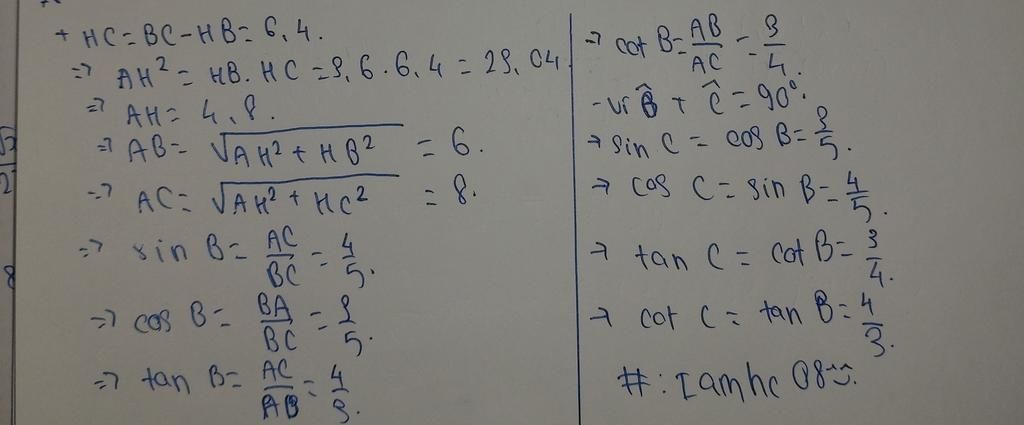 + HC = BC - HB = 6,4.
=> AH² = HB . HC = 3,6 . 6,4 = 23,04
=> AH = 4,8.
=> AB = √(AH² + HB²) = 6.
=> AC = √(AH² + HC²) = 8.
=> sin B = AC/BC = 4/5.
=> cos B = BA/BC = 3/5.
=> tan B = AC/AB = 4/3.
=> cot B = AB/AC = 3/4.
- Vì B̂ + Ĉ = 90°.
=> sin C = cos B = 3/5.
=> cos C = sin B = 4/5.
=> tan C = cot B = 3/4.
=> cot C = tan B = 4/3.
# : Iamhc 08